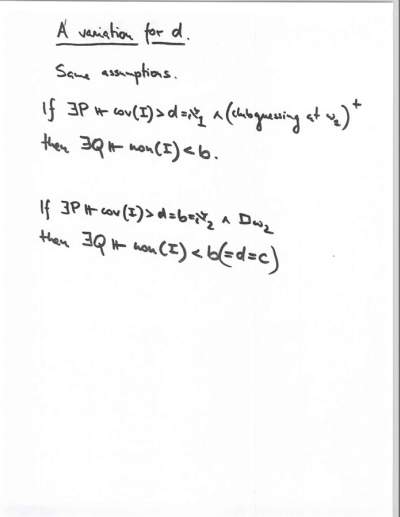 A variation for d.
Same assumptions.
If ∃P ⊩ cov(I) > d = ℵ₁ ∧ (club guessing at ω₂)⁺
then ∃Q ⊩ non(I) < b.
If ∃P ⊩ cov(I) > d = b = ℵ₂ ∧ □ω₂
then ∃Q ⊩ non(I) < b (= d = c)